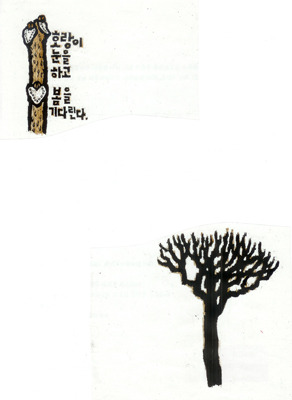 호랑이
눈을
하고
봄을
기다린다.